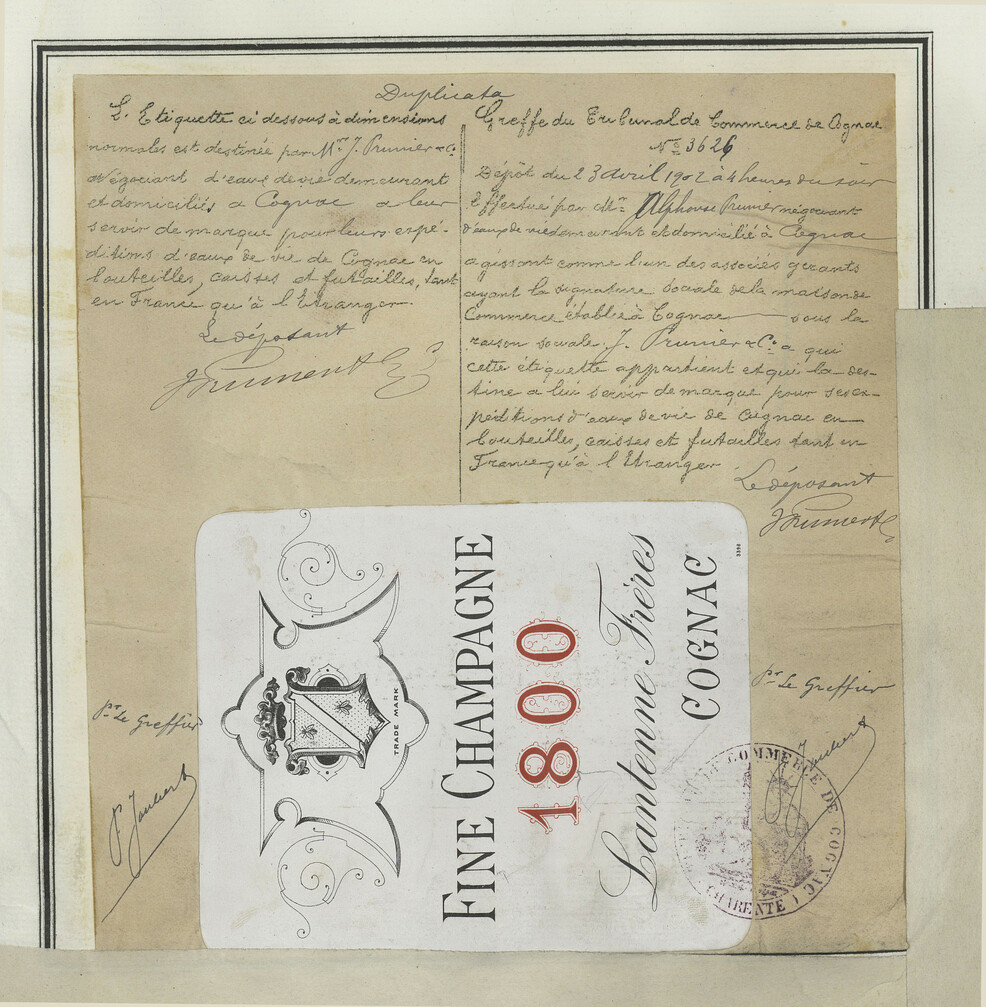 Duplicata
L'Etiquette ci dessous à dimensions
normales est destinée par Mr. J. Prunier & Co.
Négociant d'eaux de vie demeurant
et domiciliés a Cognac a leur
servir de marque pour leurs expé-
ditions d'eaux de vie de Cognac en
bouteilles, caisses et futailles, tant
en France qu'à l'Etranger.
Le déposant
J Prunier & Co
Pr. Le Greffier
P. Joubert
Greffe du Tribunal de Commerce de Cognac
No. 3626
Dépôt du 23 avril 1902 à 4 heures du soir
Effectué par Mr. Alphonse Prunier négociant
d'eaux de vie demeurant et domicilié à Cognac
agissant comme l'un des associés gérants
ayant la signature sociale de la maison de
Commerce établie à Cognac sous la
raison sociale J. Prunier & Co. a qui
cette étiquette appartient et qui la des-
tine a lui servir de marque pour ses ex-
péditions d'eaux de vie de Cognac en
bouteilles, caisses et futailles tant en
France qu'à l'Etranger
Le déposant
J Prunier & Co
Pr. Le Greffier
P. Joubert
TRADE MARK
FINE CHAMPAGNE
1800
Lantenne Frères
COGNAC
3386
DE COMMERCE DE COGNAC
CHARENTE